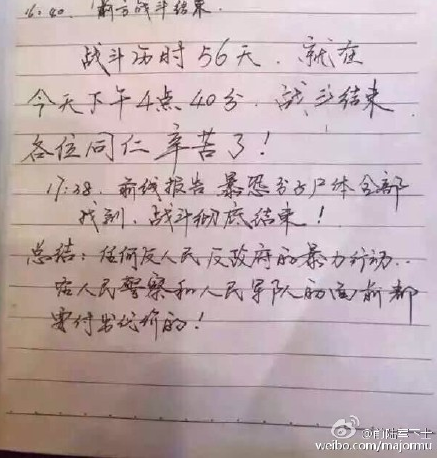 16:40. 前方战斗结束.
战斗历时56天.就在
今天下午4点40分.战斗结束.
各位同仁辛苦了!
17:38.前线报告暴恐分子尸体全部
找到.战斗彻底结束!
总结:任何反人民反政府的暴力行动..
在人民警察和人民军队的面前都
要付出代价的!
@前陆军下士
weibo.com/majormu